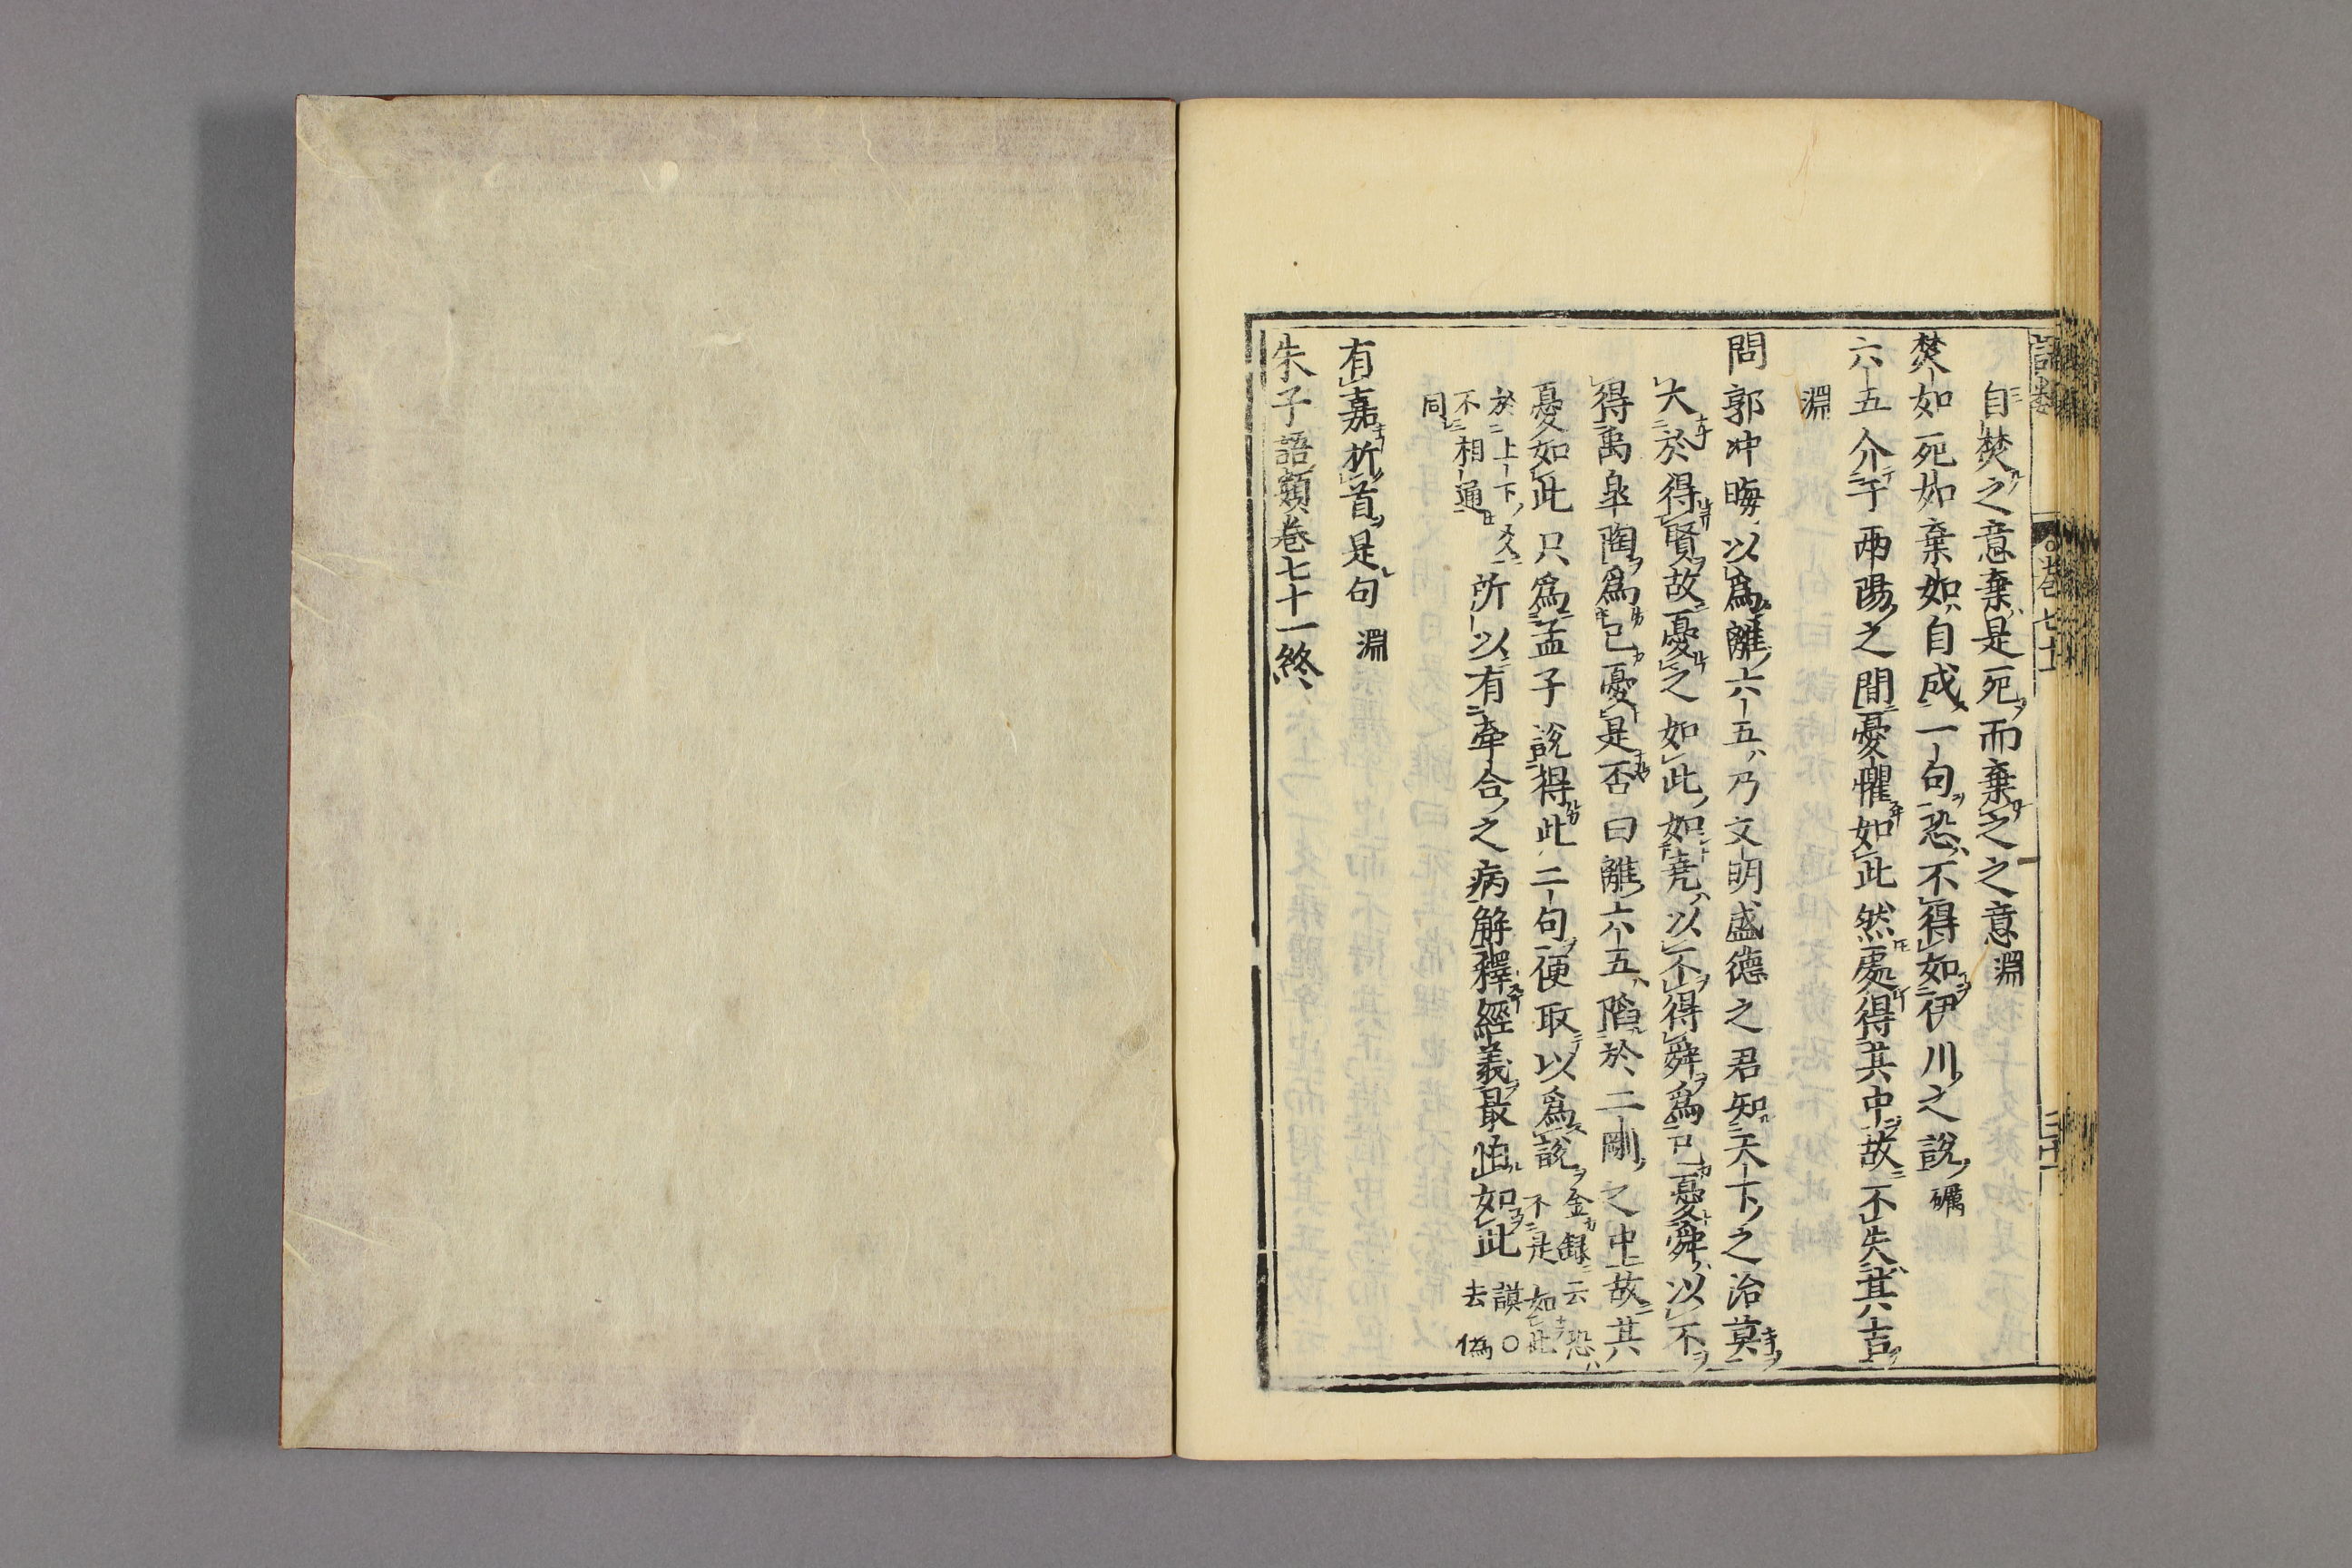 自焚之意棄是死而棄之之意淵
焚如死如棄如自成一句恐不得如伊川之說礪
六五介于兩陽之間憂懼如此然處得其中故不失其吉
淵
問郭冲晦以爲離六五乃文明盛德之君知天下之治莫
大於得賢故憂之如此如堯以不得舜爲己憂舜以不
得禹臯陶爲己憂是否曰離六五陷於二剛之中故其
憂如此只爲孟子說得此二句便取以爲說金錄云恐不是如此
於上下爻不相通所以有牽合之病解釋經義最怕如此謨○去僞
同
有嘉折首是句淵
朱子語類卷七十一終